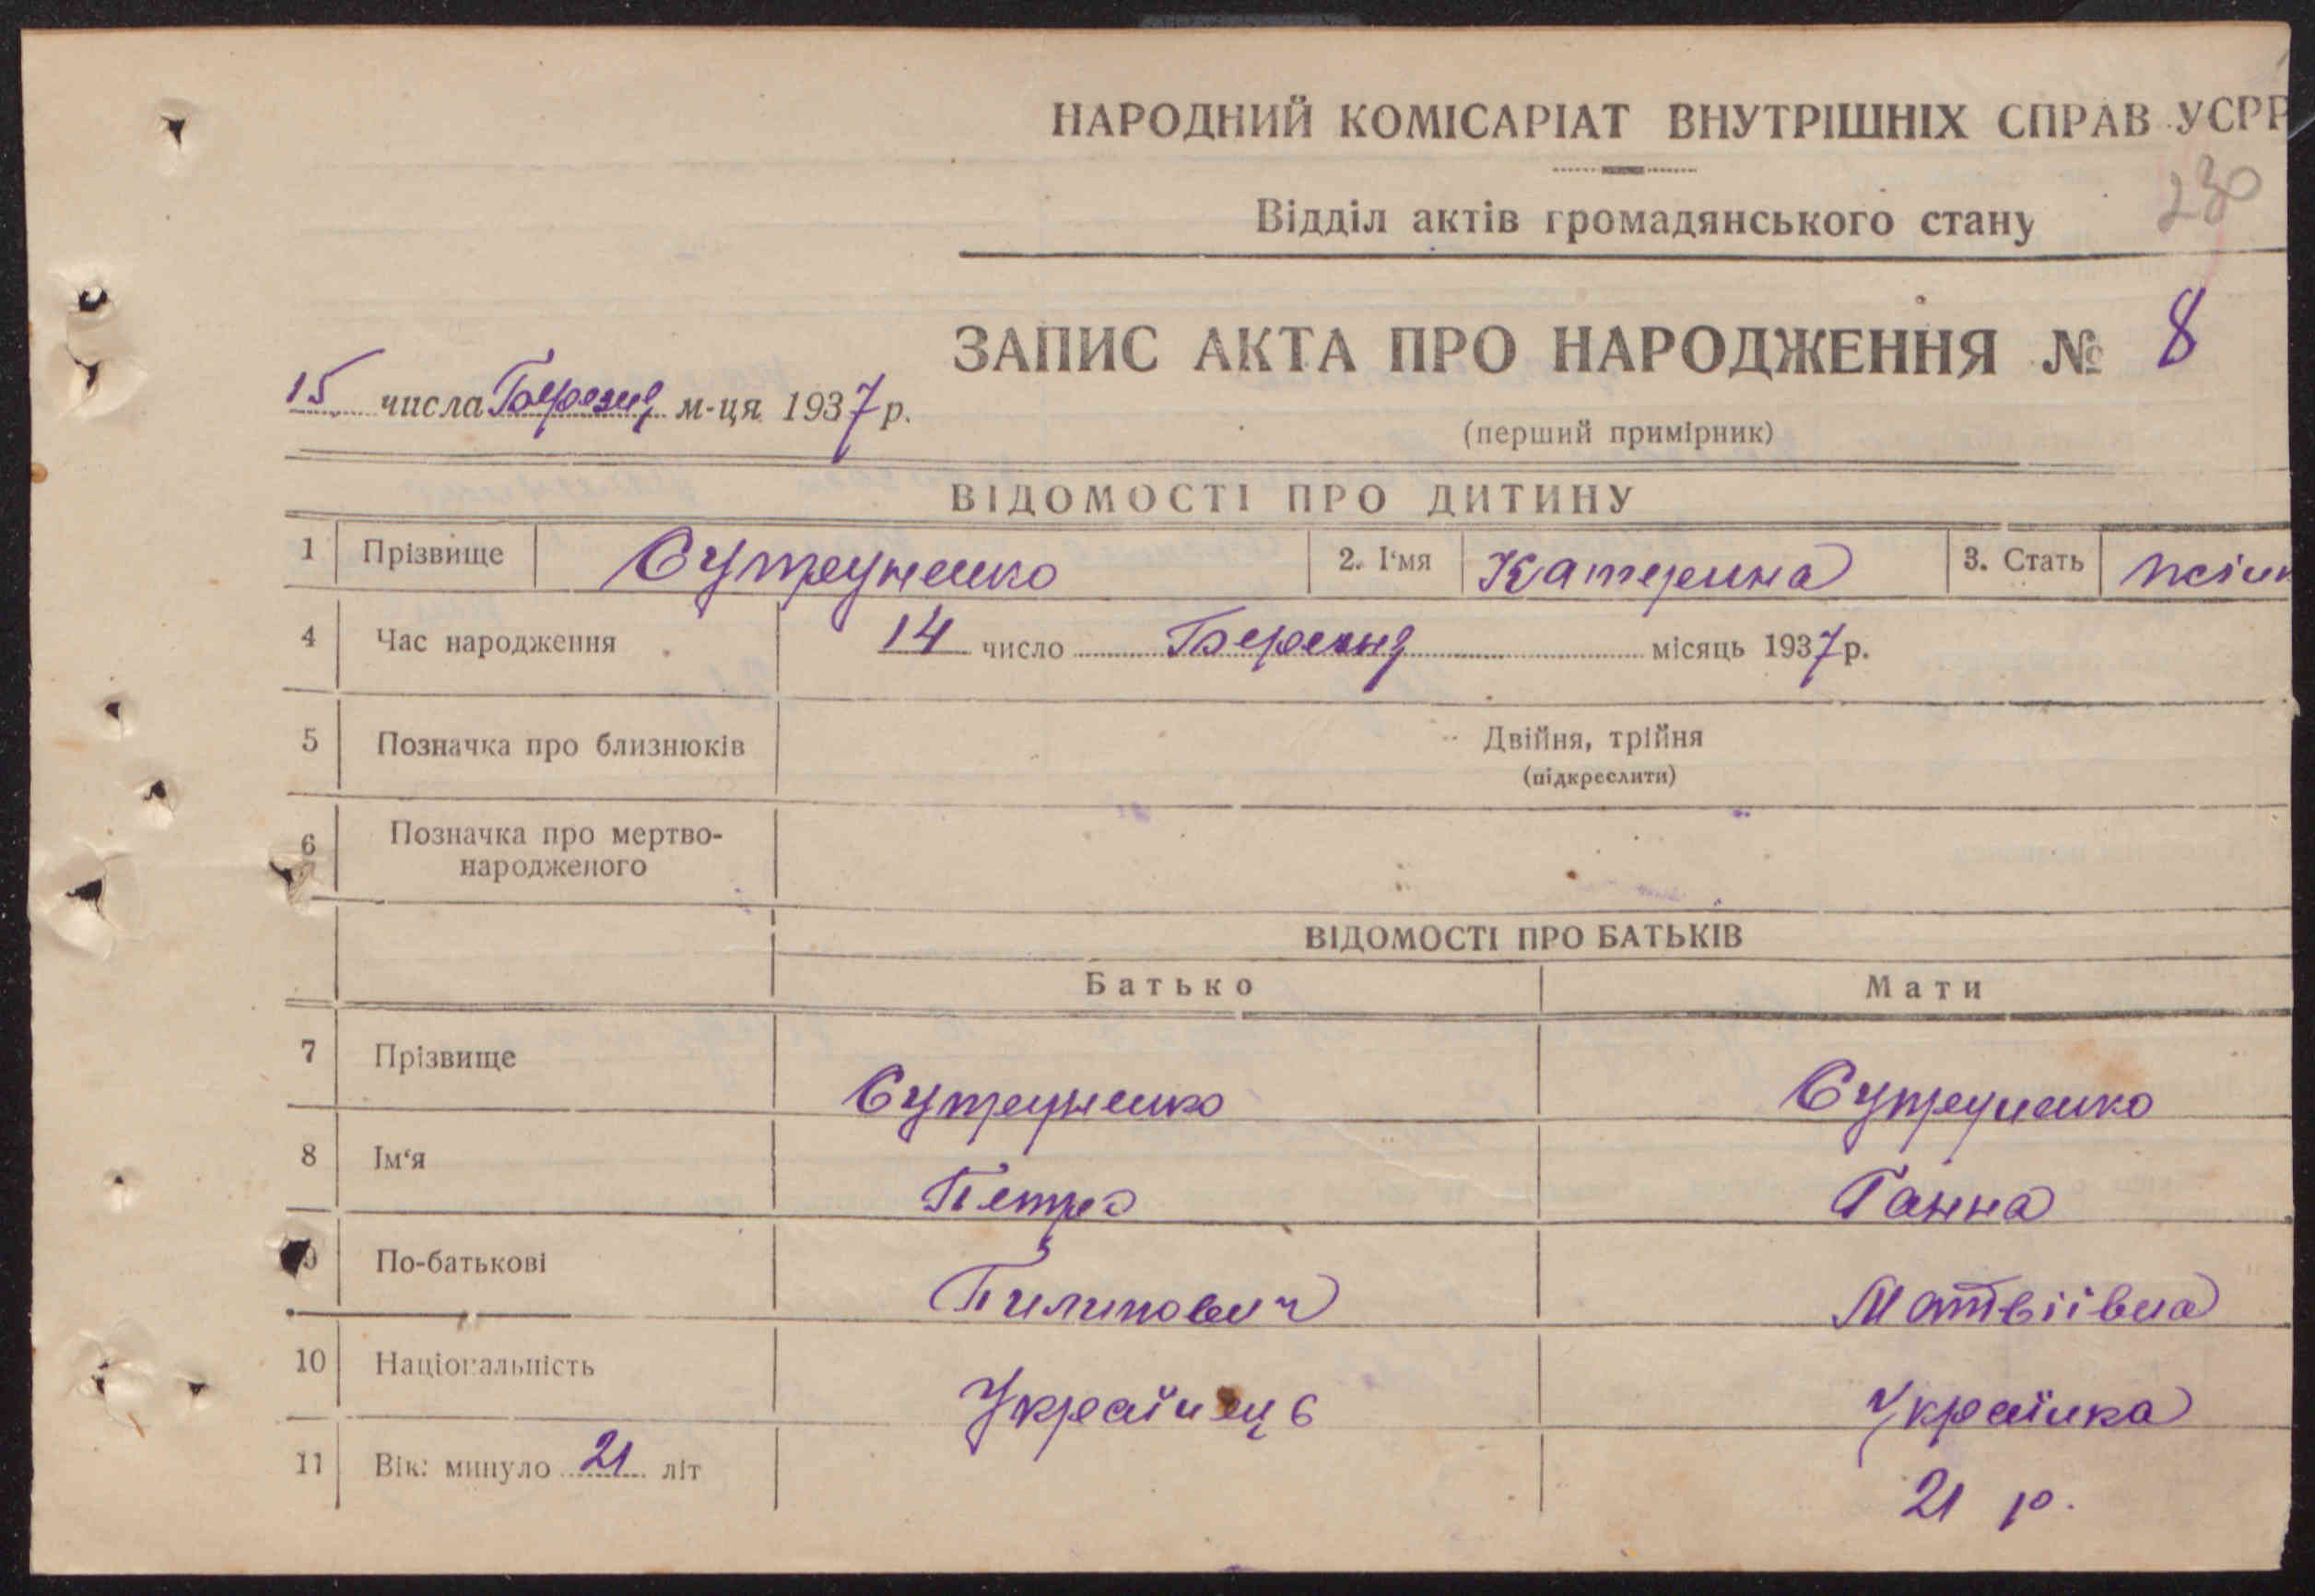 НАРОДНИЙ КОМІСАРІАТ ВНУТРІШНІХ СПРАВ УСРР
230
Відділ актів громадянського стану
ЗАПИС АКТА ПРО НАРОДЖЕННЯ № 8
15 числа Березня м-ця 1937 р.
(перший примірник)
ВІДОМОСТІ ПРО ДИТИНУ
1 Прізвище 2. І'мя Катерина 3. Стать жіноч
4 Час народження 14 число Березня місяць 1937 р.
5 Позначка про близнюків Двійня, трійня
(підкреслити)
6 Позначка про мертво-
народженого
ВІДОМОСТІ ПРО БАТЬКІВ
Батько Мати
7 Прізвище
8 Ім'я Петро Ганна
9 По-батькові Пилипович Матвіівна
10 Національність Українець Українка
11 Вік: минуло 21 літ 21 р.